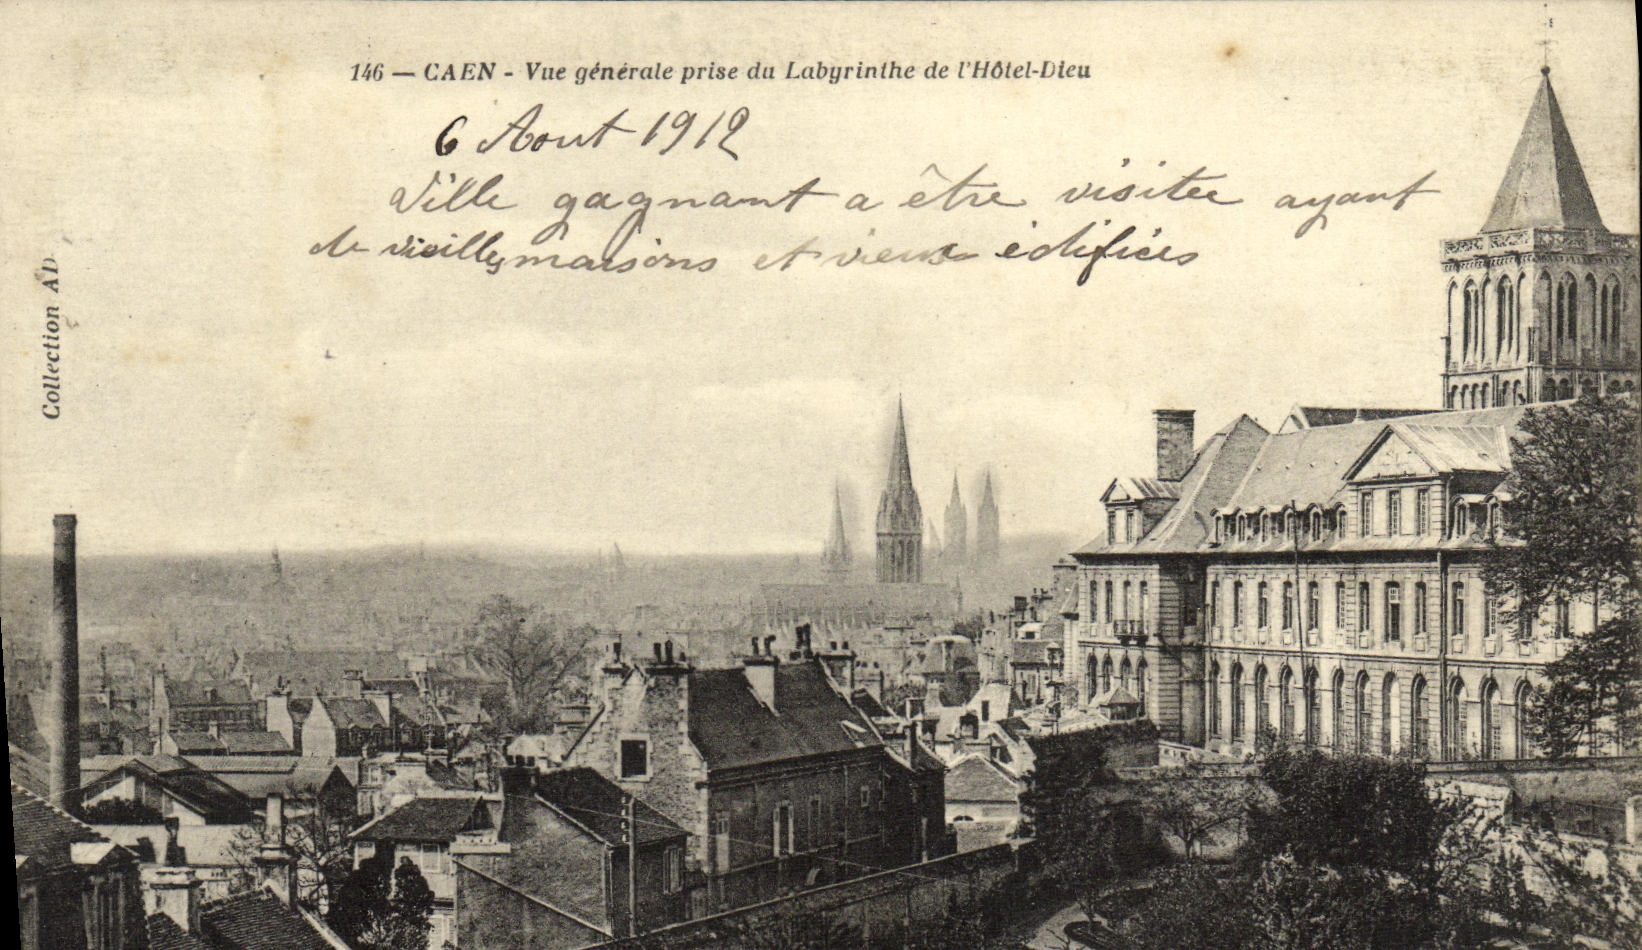 146 — CAEN - Vue générale prise du Labyrinthe de l'Hôtel-Dieu
6 Aout 1912
Ville gagnant a être visitée ayant
de vieilles maisons et vieux édifices
Collection AD.